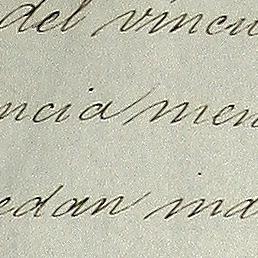 del víncu
ncia men
edan ma